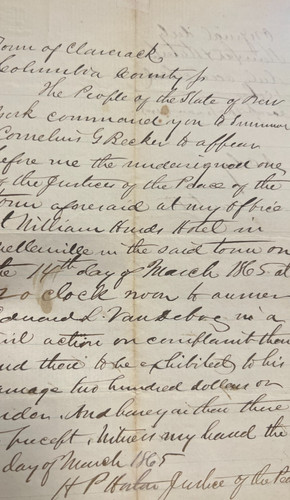 Town of Claverack
Columbia County ss
The People of the State of New
York command you to Summon
Cornelius G Becker to appear
before me the undersigned one
of the Justices of the Peace of the
Town aforesaid at my office
at William Hinds Hotel in
Mellenville in the said town on
the 14th day of March 1865 at
o clock noon to answer
Edward L. Van in a
civil action on complaint then
and there to be exhibited to his
damage two hundred dollars or
under. And have you then there
precept. Witness my hand the
day of March 1865
H P Justice of the Pea